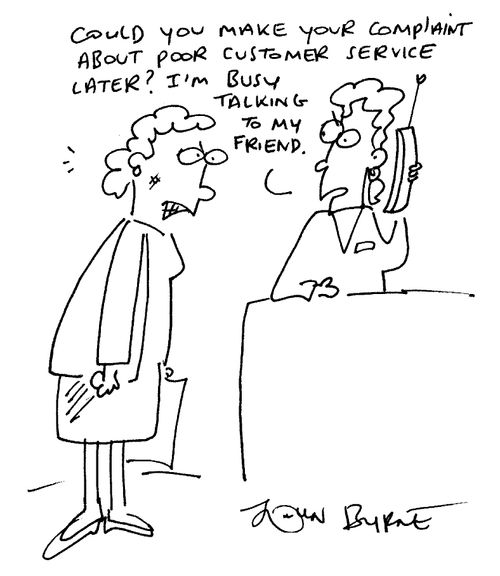 COULD YOU MAKE YOUR COMPLAINT
ABOUT POOR CUSTOMER SERVICE
LATER? I'M BUSY
TALKING
TO MY
FRIEND.
JOHN BYRNE